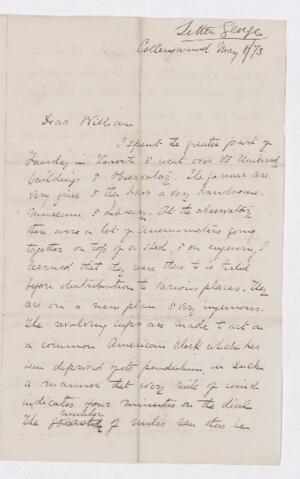 Letter George
Collingwood May 8/73
Dear William
I spent the greater part of
Tuesday in Toronto & went over the University
buildings & Observatory. The former are
very fine & they have a very handsome
museum & library. At the observatory
there were a lot of Anemometers going
together on top of a shed, & on enquiry I
learned that they were there to be tested
before distribution to various places. They
are on a new plan & very ingenious.
The revolving cups are made to act on
a common American clock which has
been deprived of its pendulum, in such
a manner that every mile of wind
indicates four minutes on the dial.
number
The of miles can thus be